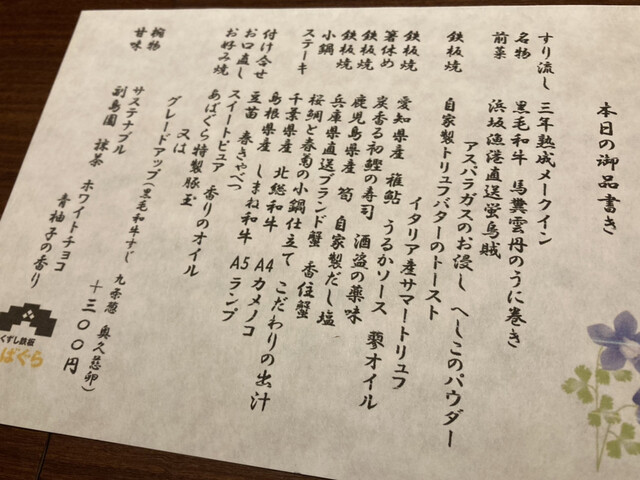 本日の御品書き
すり流し 三年熟成メークイン
名物 黒毛和牛 馬糞雲丹のうに巻き
前菜 浜坂漁港直送蛍烏賊
アスパラガスのお浸し へしこのパウダー
鉄板焼 自家製トリュフバターのトースト
イタリア産サマートリュフ
鉄板焼 愛知県産 稚鮎 うるかソース 蓼オイル
箸休め 炭香る初鰹の寿司 酒盗の薬味
鉄板焼 鹿児島県産 筍 自家製だし塩
鉄板焼 兵庫県直送ブランド蟹 香住蟹
小鍋 桜鯛と春菊の小鍋仕立て こだわりの出汁
ステーキ 千葉県産 北総和牛 A4カメノコ
島根県産 しまね和牛 A5ランプ
付け合せ 豆苗 春きゃべつ
お口直し スイートピュア 香りのオイル
お好み焼 あばぐら特製豚玉
又は
グレードアップ(黒毛和牛すじ 九条葱 奥久慈卵)
+三〇〇円
椀物 サステナブル
甘味 副島園 抹茶 ホワイトチョコ
青柚子の香り
くずし鉄板
ばぐら